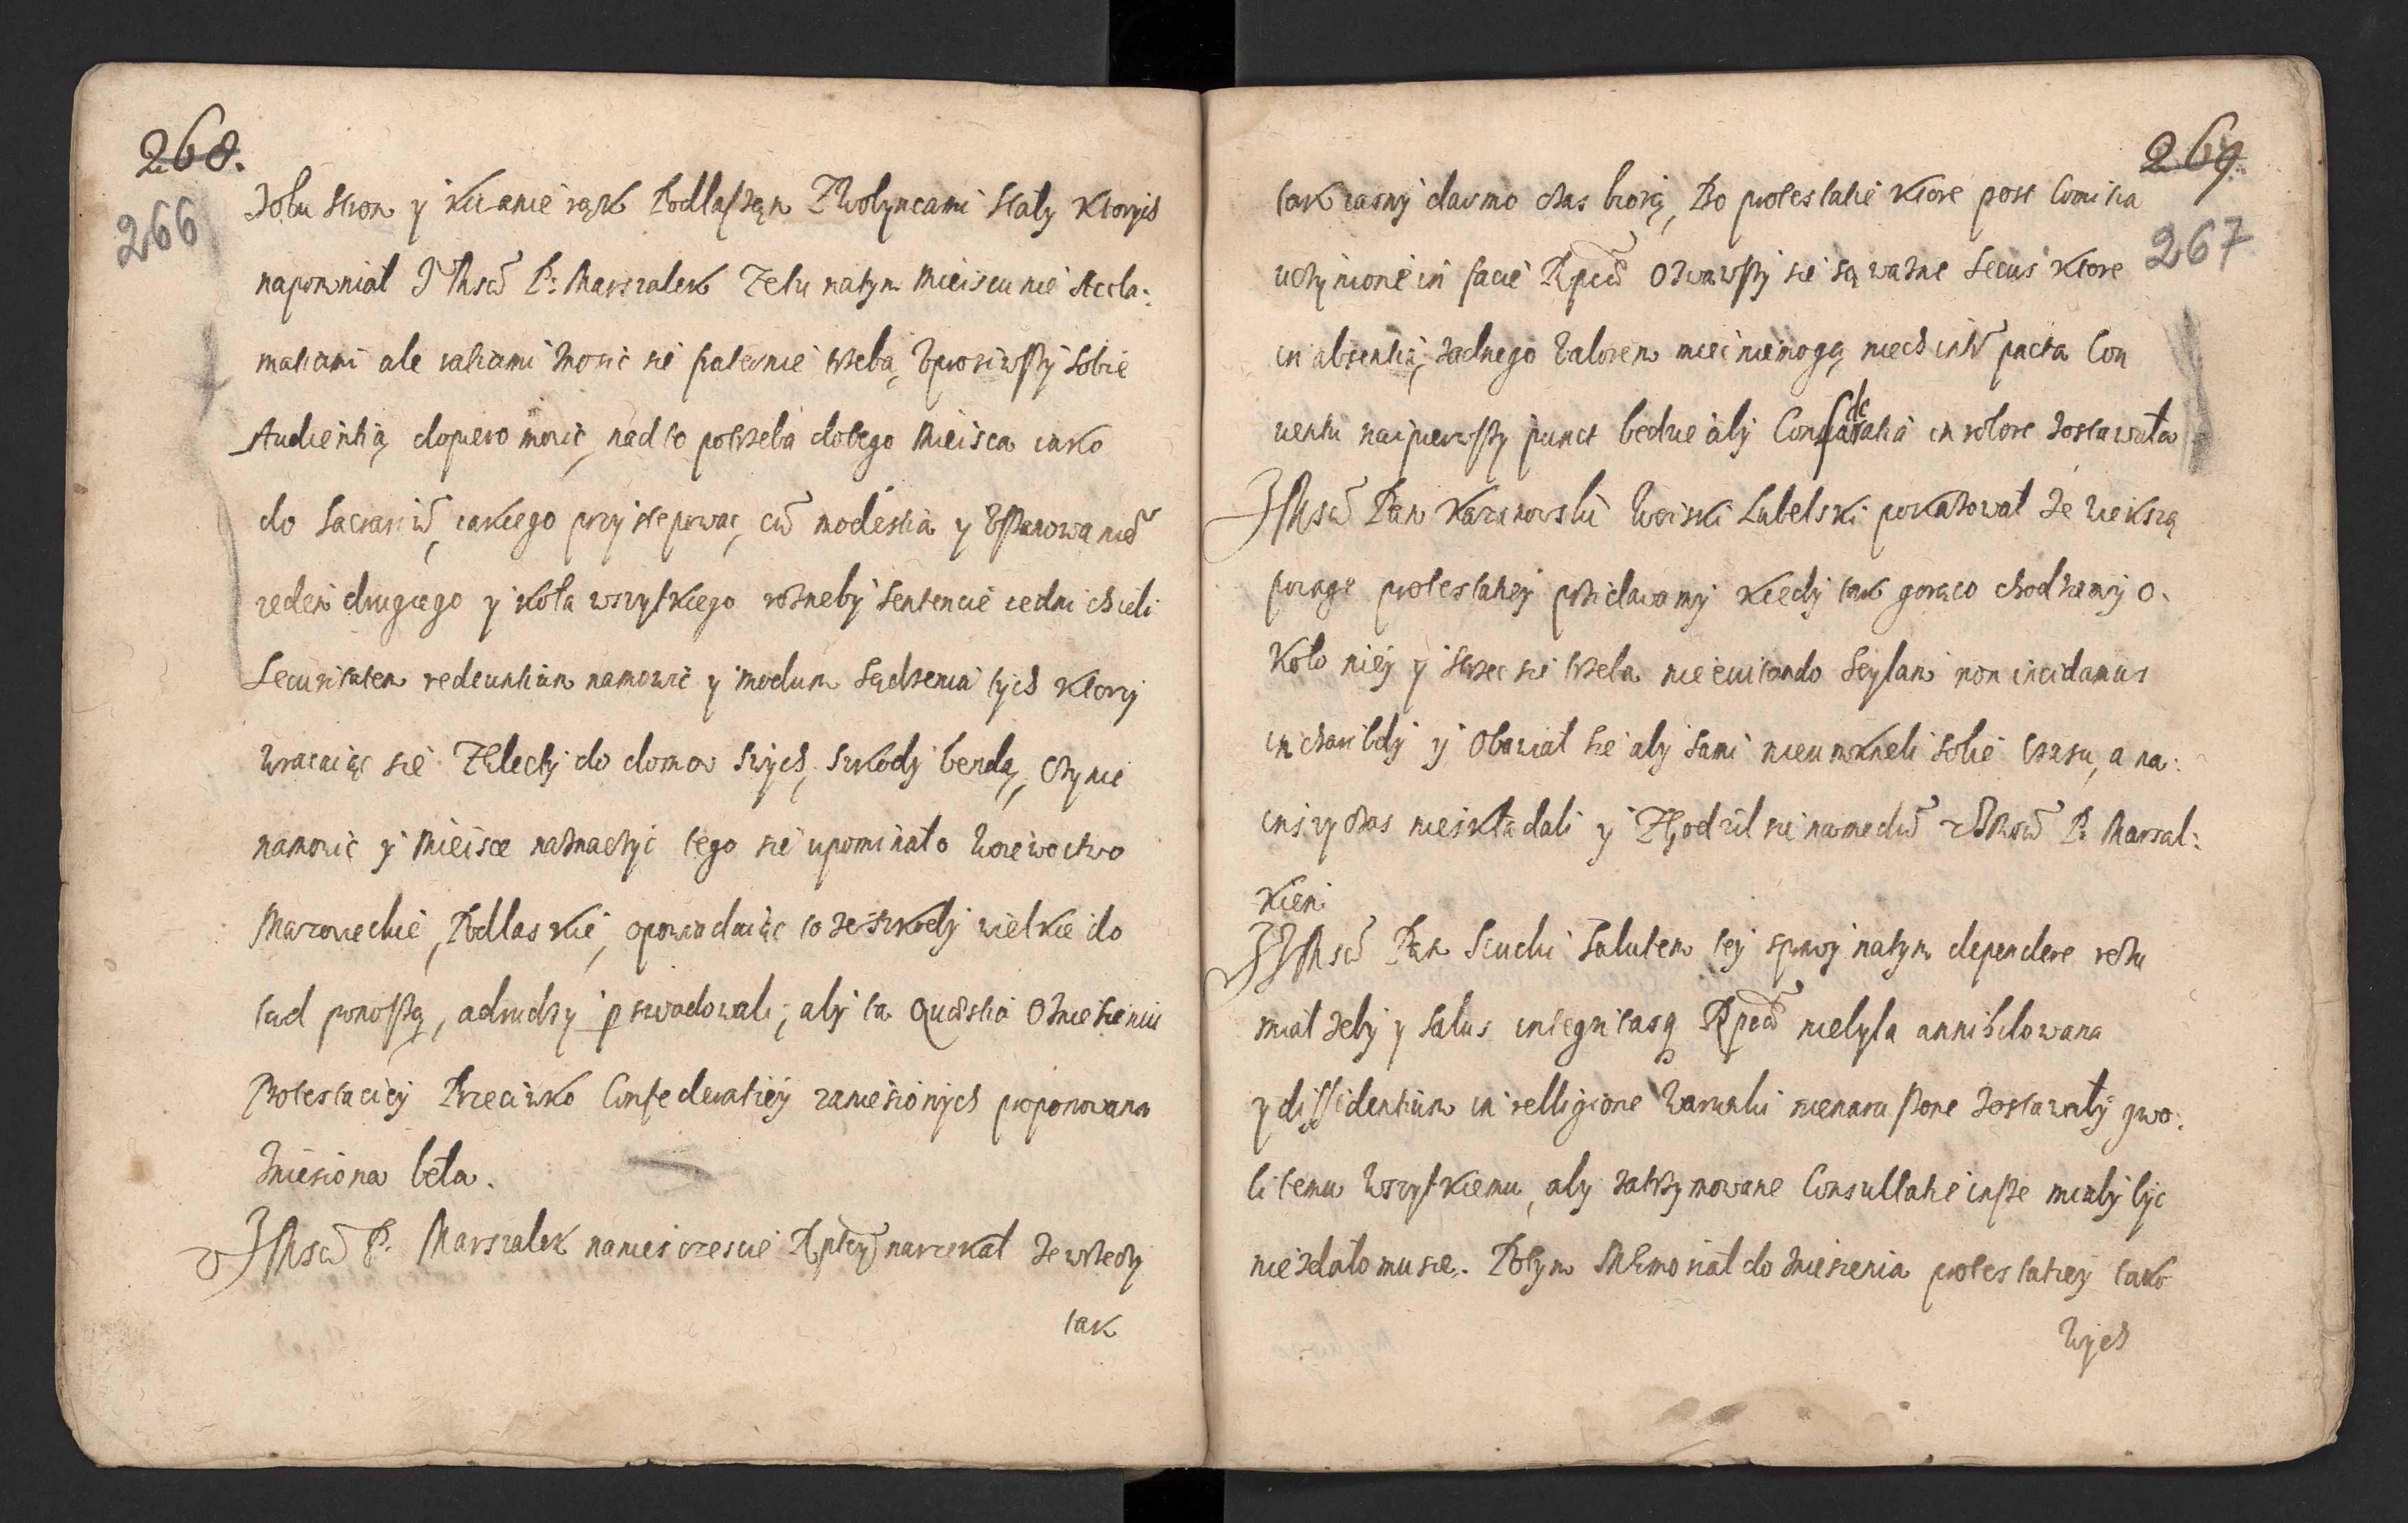 268.
266
Zobu stron y kiwanie rąk Podlaszan Zwolyncami stały ktorych
napomniał J Mscῶ P: Marszalek Zetu natym Mieiscu nie Accla:
matiami ale ratiami znosić sie statecznie trzeba, Uprosiwszy sobie
Audientią dopiero mowic, nad to potrzeba dotego Mieisca iako
do Sacrariῶ, iakiego przystepowac, cῶ modestia y Uszanowaniē
ieden drugiego y koła wszystkiego rozneby sentencie iedni chcieli
Securitatem redeuntium namowić y modum sądzenia tych ktorzy
wracaiąc sie Zelekcy do domow swych, szkody bendą, czynic
namowić y Mieisce naznaczyć tego sie upominało Woiewoctwo
Mazowieckie, Podlaskie, opowiadaiąc to ze szkody wielkie do
tąd ponoszą, a drudzy pswadowali, aby ta Quæstia Ozniesieniu
Protestaciey Przeciwko Confederatiey zaniesionych proponowana
Zniesiona beła.
J Mscῶ P. Marszalek nanieszczescie Rptey narzekał ze wtedy
tak
269
267
tak iasny darmo czas biorą, Bo protestatie ktore post Comitia
uczynione in facie Rpcæ Ozwawszy sie są wazne secus ktore
in absentia, zadnego Valorem miec niemogą niech intr pacta Con
uentu naipierwszy punct bedzie aby Confœderatia in robore zostawała
J Mscῶ Pan Kazanowski Woiski Lubelski pokazował ze wieksza
powage protestatiey przidawamy kiedy tak goraco chodziemy o.
Koło niey y strzec sie trzeba nie euitando Scylam non incidamus
in charibdy y Obawiał sie aby sami nieumkneli sobie czasu, a na:
inszy czas nieskładali y Zgodził sie namediῶ z J Mscῶ P. Marszał:
kiem
J J Mscῶ Pan Scucki Salutem tey sprawy natym dependere rozu
miał zeby y salus integritasq Rpcæ niebyla annihilowana
y dissidentium in relligione Warunki nienaruszone zostawały gwo:
li temu wszystkiemu, aby zatrzymowane Consultatie insze mialy byc
niezdało musie. Potym Memoriał do zniesienia protestatiey tako
wych